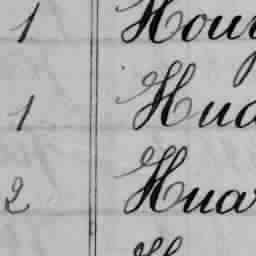 1 Houy
1 Hua
2 Huar